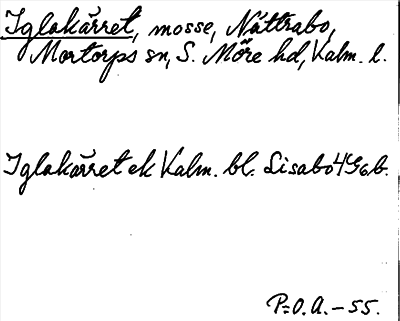 Iglakärret, mosse, Nåttrabo,
Mortorps sn, S. Möre hd, Kalm. l.
Iglakärret ek Kalm. bl. Lisabo 4G6b.
P=O. A. - 55.